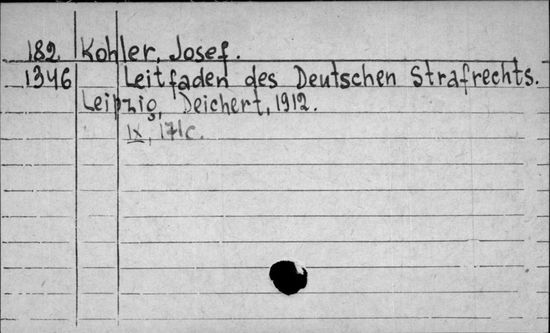 182 Kohler, Josef.
1346 Leitfaden des Deutschen Strafrechts.
Leipzig, Deichert, 1912.
IX, 171c.